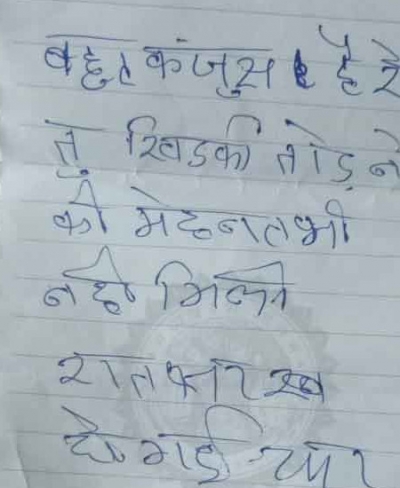 बहुत कंजुस है रे
तु खिडकी तोड़ने
की मेहनत भी
नही मिली
रात खराब
हो गई यार